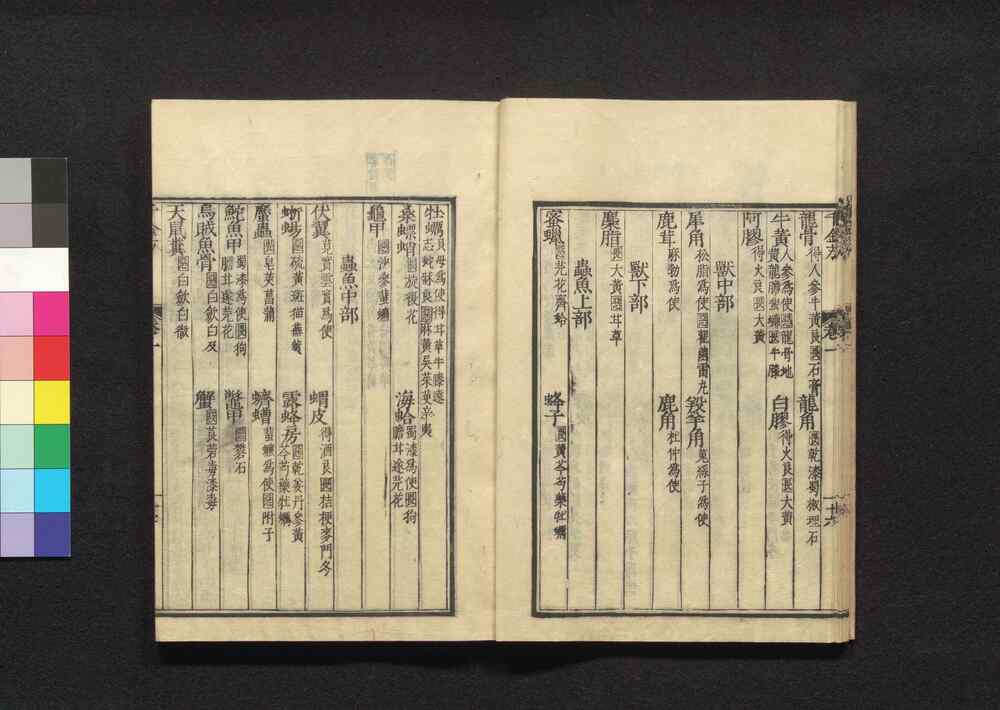 龍骨 得人參牛黃良畏石膏
龍角 畏乾漆蜀椒理石
牛黃 人參為使惡龍骨地黃龍膽蜚蠊畏牛膝
白膠 得火良畏大黃
阿膠 得火良畏大黃
獸中部
犀角 松脂為使惡雚菌雷丸
羖羊角 菟絲子為使
鹿茸 麻勃為使
鹿角 杜仲為使
獸下部
麋脂 畏大黃惡甘草
蟲魚上部
蜜蠟 惡芫花齊蛤
蜂子 畏黃芩芍藥牡蠣
千金方 卷一 十六
牡蠣 貝母為使得甘草牛膝遠志蛇牀良惡麻黃吳茱萸辛夷
桑螵蛸 畏旋復花
海蛤 蜀漆為使畏狗膽甘遂芫花
龜甲 惡沙參蜚蠊
蟲魚中部
伏翼 莧實雲實為使
蝟皮 得酒良畏桔梗麥門冬
蜥蜴 惡硫黃斑猫蕪荑
露蜂房 惡乾姜丹參黃芩芍藥牡蠣
䗪蟲 畏皂莢菖蒲
蠐螬 蜚蠊為使惡附子
鮀魚甲 蜀漆為使畏狗膽甘遂芫花
鱉甲 惡礬石
烏賊魚骨 惡白歛白及
蟹 惡莨菪毒漆毒
天鼠糞 惡白歛白微